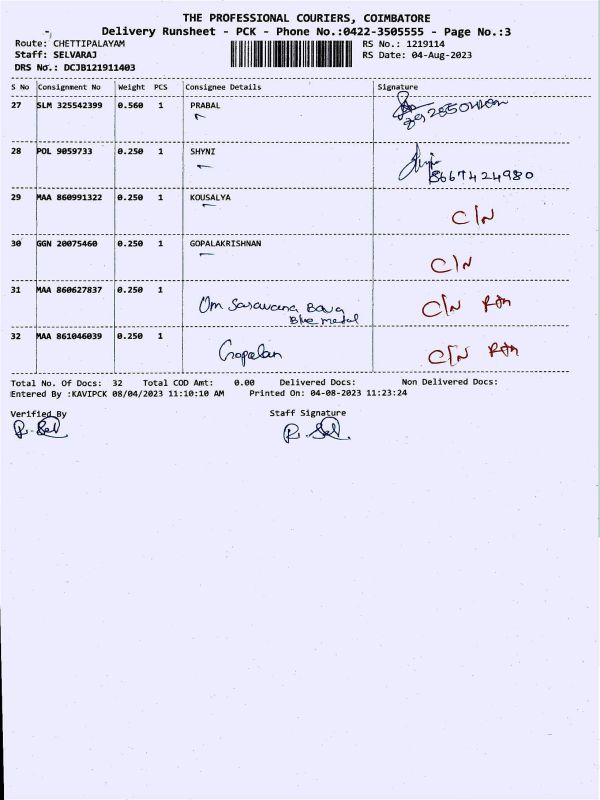 THE PROFESSIONAL COURIERS, COIMBATORE
Delivery Runsheet - PCK - Phone No.:0422-3505555 - Page No.:3
Route: CHETTIPALAYAM RS No.: 1219114
Staff: SELVARAJ RS Date: 04-Aug-2023
DRS No.: DCJB121911403
S No Consignment No Weight PCS Consignee Details Signature
27 SLM 325542399 0.560 1 PRABAL
28 POL 9059733 0.250 1 SHYNI
8667424980
29 MAA 860991322 0.250 1 KOUSALYA C/N
30 GGN 20075460 0.250 1 GOPALAKRISHNAN C/N
31 MAA 860627837 0.250 1 Om Saravana Bava C/N
Blue metal
32 MAA 861046039 0.250 1 Gopalan C/N
Total No. Of Docs: 32 Total COD Amt: 0.00 Delivered Docs: Non Delivered Docs:
Entered By :KAVIPCK 08/04/2023 11:10:10 AM Printed On: 04-08-2023 11:23:24
Verified By Staff Signature
R. Sel R. Sel.